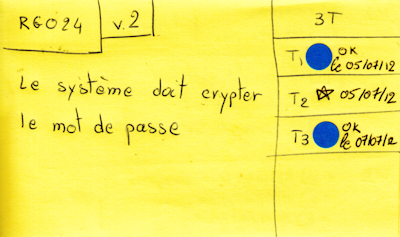 RG024 v.2
Le système doit crypter
le mot de passe
3T
T1 OK
le 05/07/12
T2 05/07/12
T3 OK
le 07/07/12